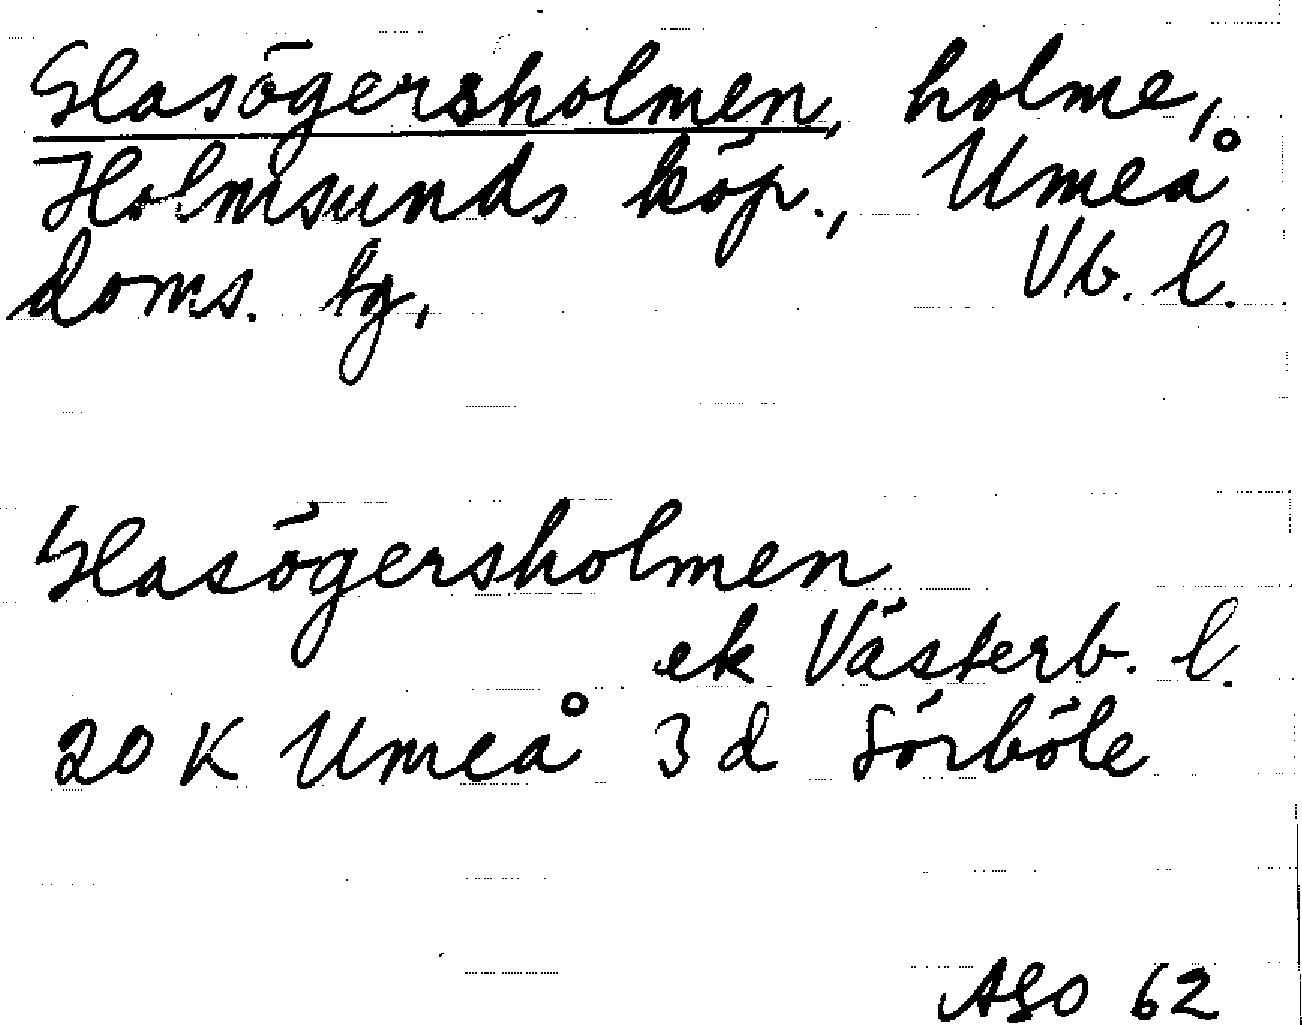 Glasögersholmen, holme,
Holmsunds köp., Umeå
doms. tg, Vb. l.
Glasögersholmen
ek Västerb. l.
20 K Umeå 3 d Sörböle
ASO 62